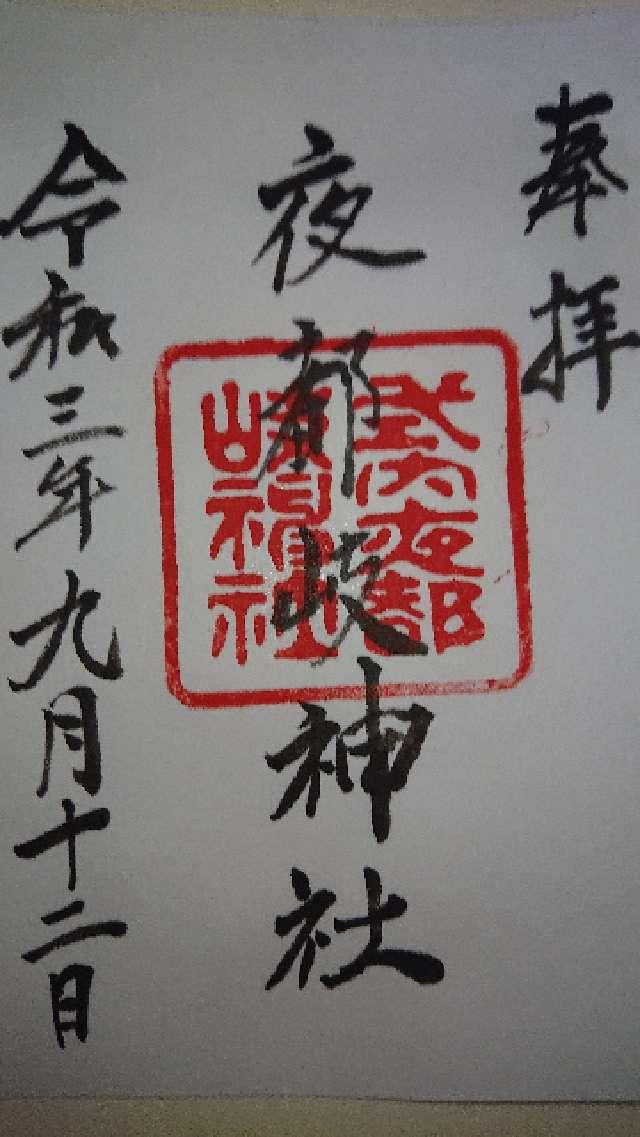 奉拝
夜都岐神社
式内夜都
岐神社
令和三年九月十二日